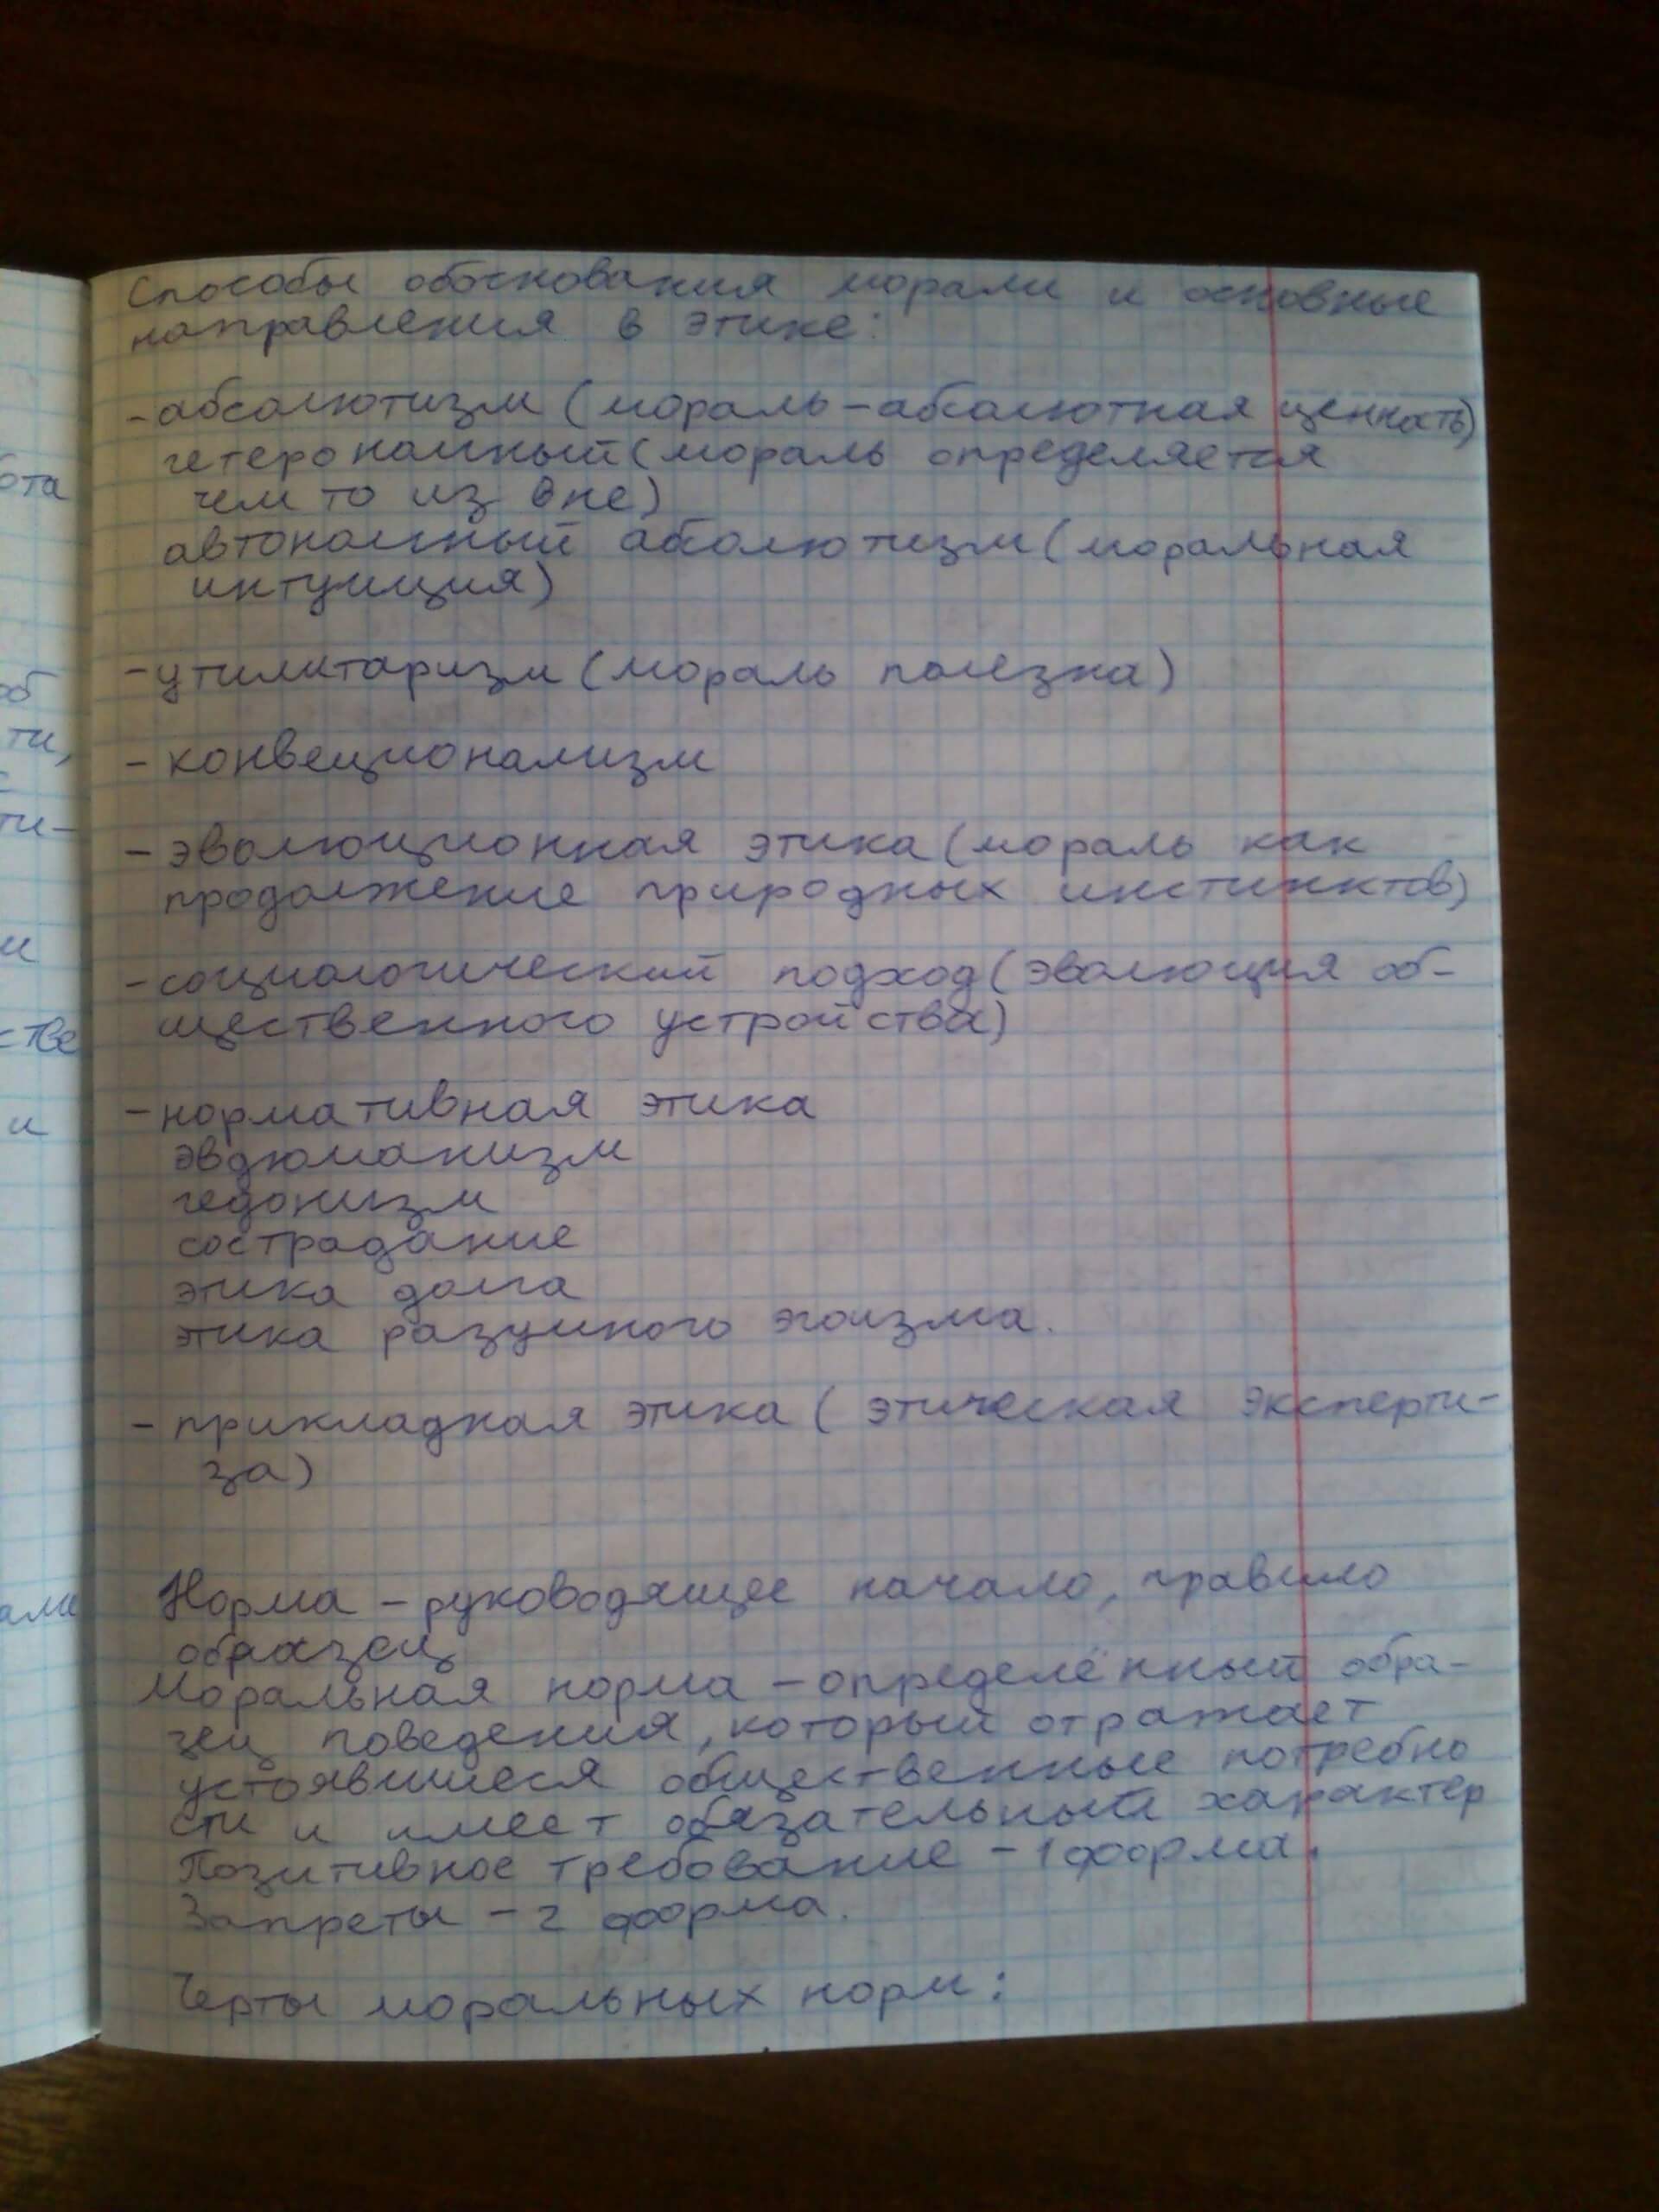 Способы обоснования морали и основные
направления в этике:
- абсолютизм (мораль - абсолютная ценность)
гетерономный (мораль определяется
чем то из вне)
автономный абсолютизм (моральная
интуиция)
- утилитаризм (мораль полезна)
- конвеционализм
- эволюционная этика (мораль как
продолжение природных инстинктов)
- социологический подход (эволюция об-
щественного устройства)
- нормативная этика
эвдюманизм
гедонизм
сострадание
этика долга
этика разумного эгоизма.
- прикладная этика (этическая эксперти-
за)
Норма - руководящее начало, правило
образец
Моральная норма - определённый обра-
зец поведения, который отражает
устоявшиеся общественные потребно
сти и имеет обязательный характер
Позитивное требование - 1 форма.
Запреты - 2 форма.
Черты моральных норм: